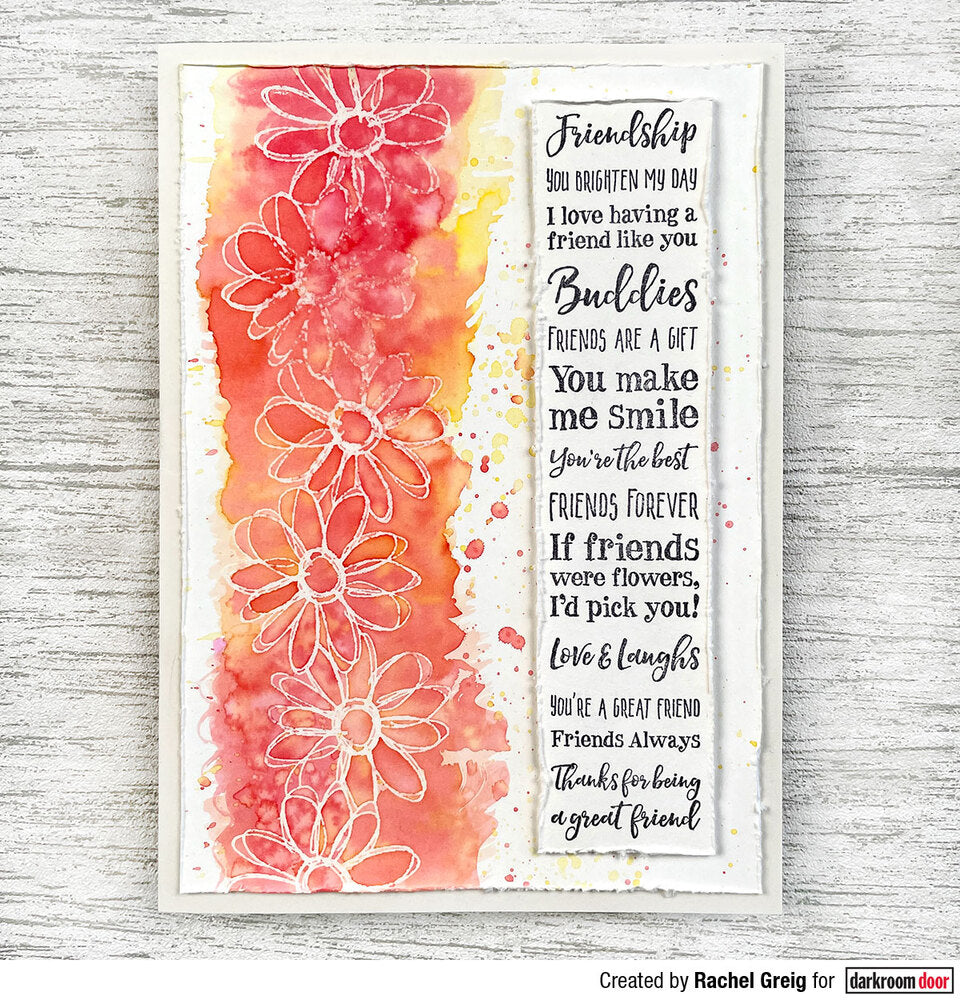 Friendship
YOU BRIGHTEN MY DAY
I love having a
friend like you
Buddies
FRIENDS ARE A GIFT
You make
me smile
You're the best
FRIENDS FOREVER
If friends
were flowers,
I'd pick you!
Love & Laughs
YOU'RE A GREAT FRIEND
Friends Always
Thanks for being
a great friend
Created by Rachel Greig for darkroom door